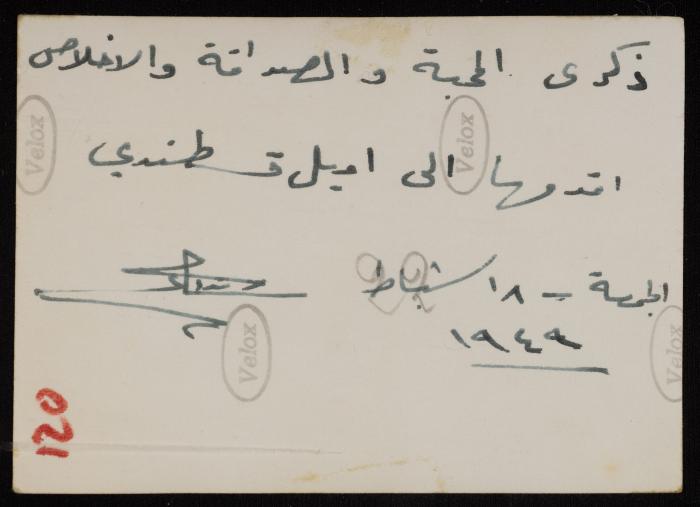 ذكرى المحبة والصداقة والاخلاص
اقدمها الى اميل قسطندي
الجمعة - ١٨ شباط
١٩٤٩
Velox
Velox
Velox
Velox
120